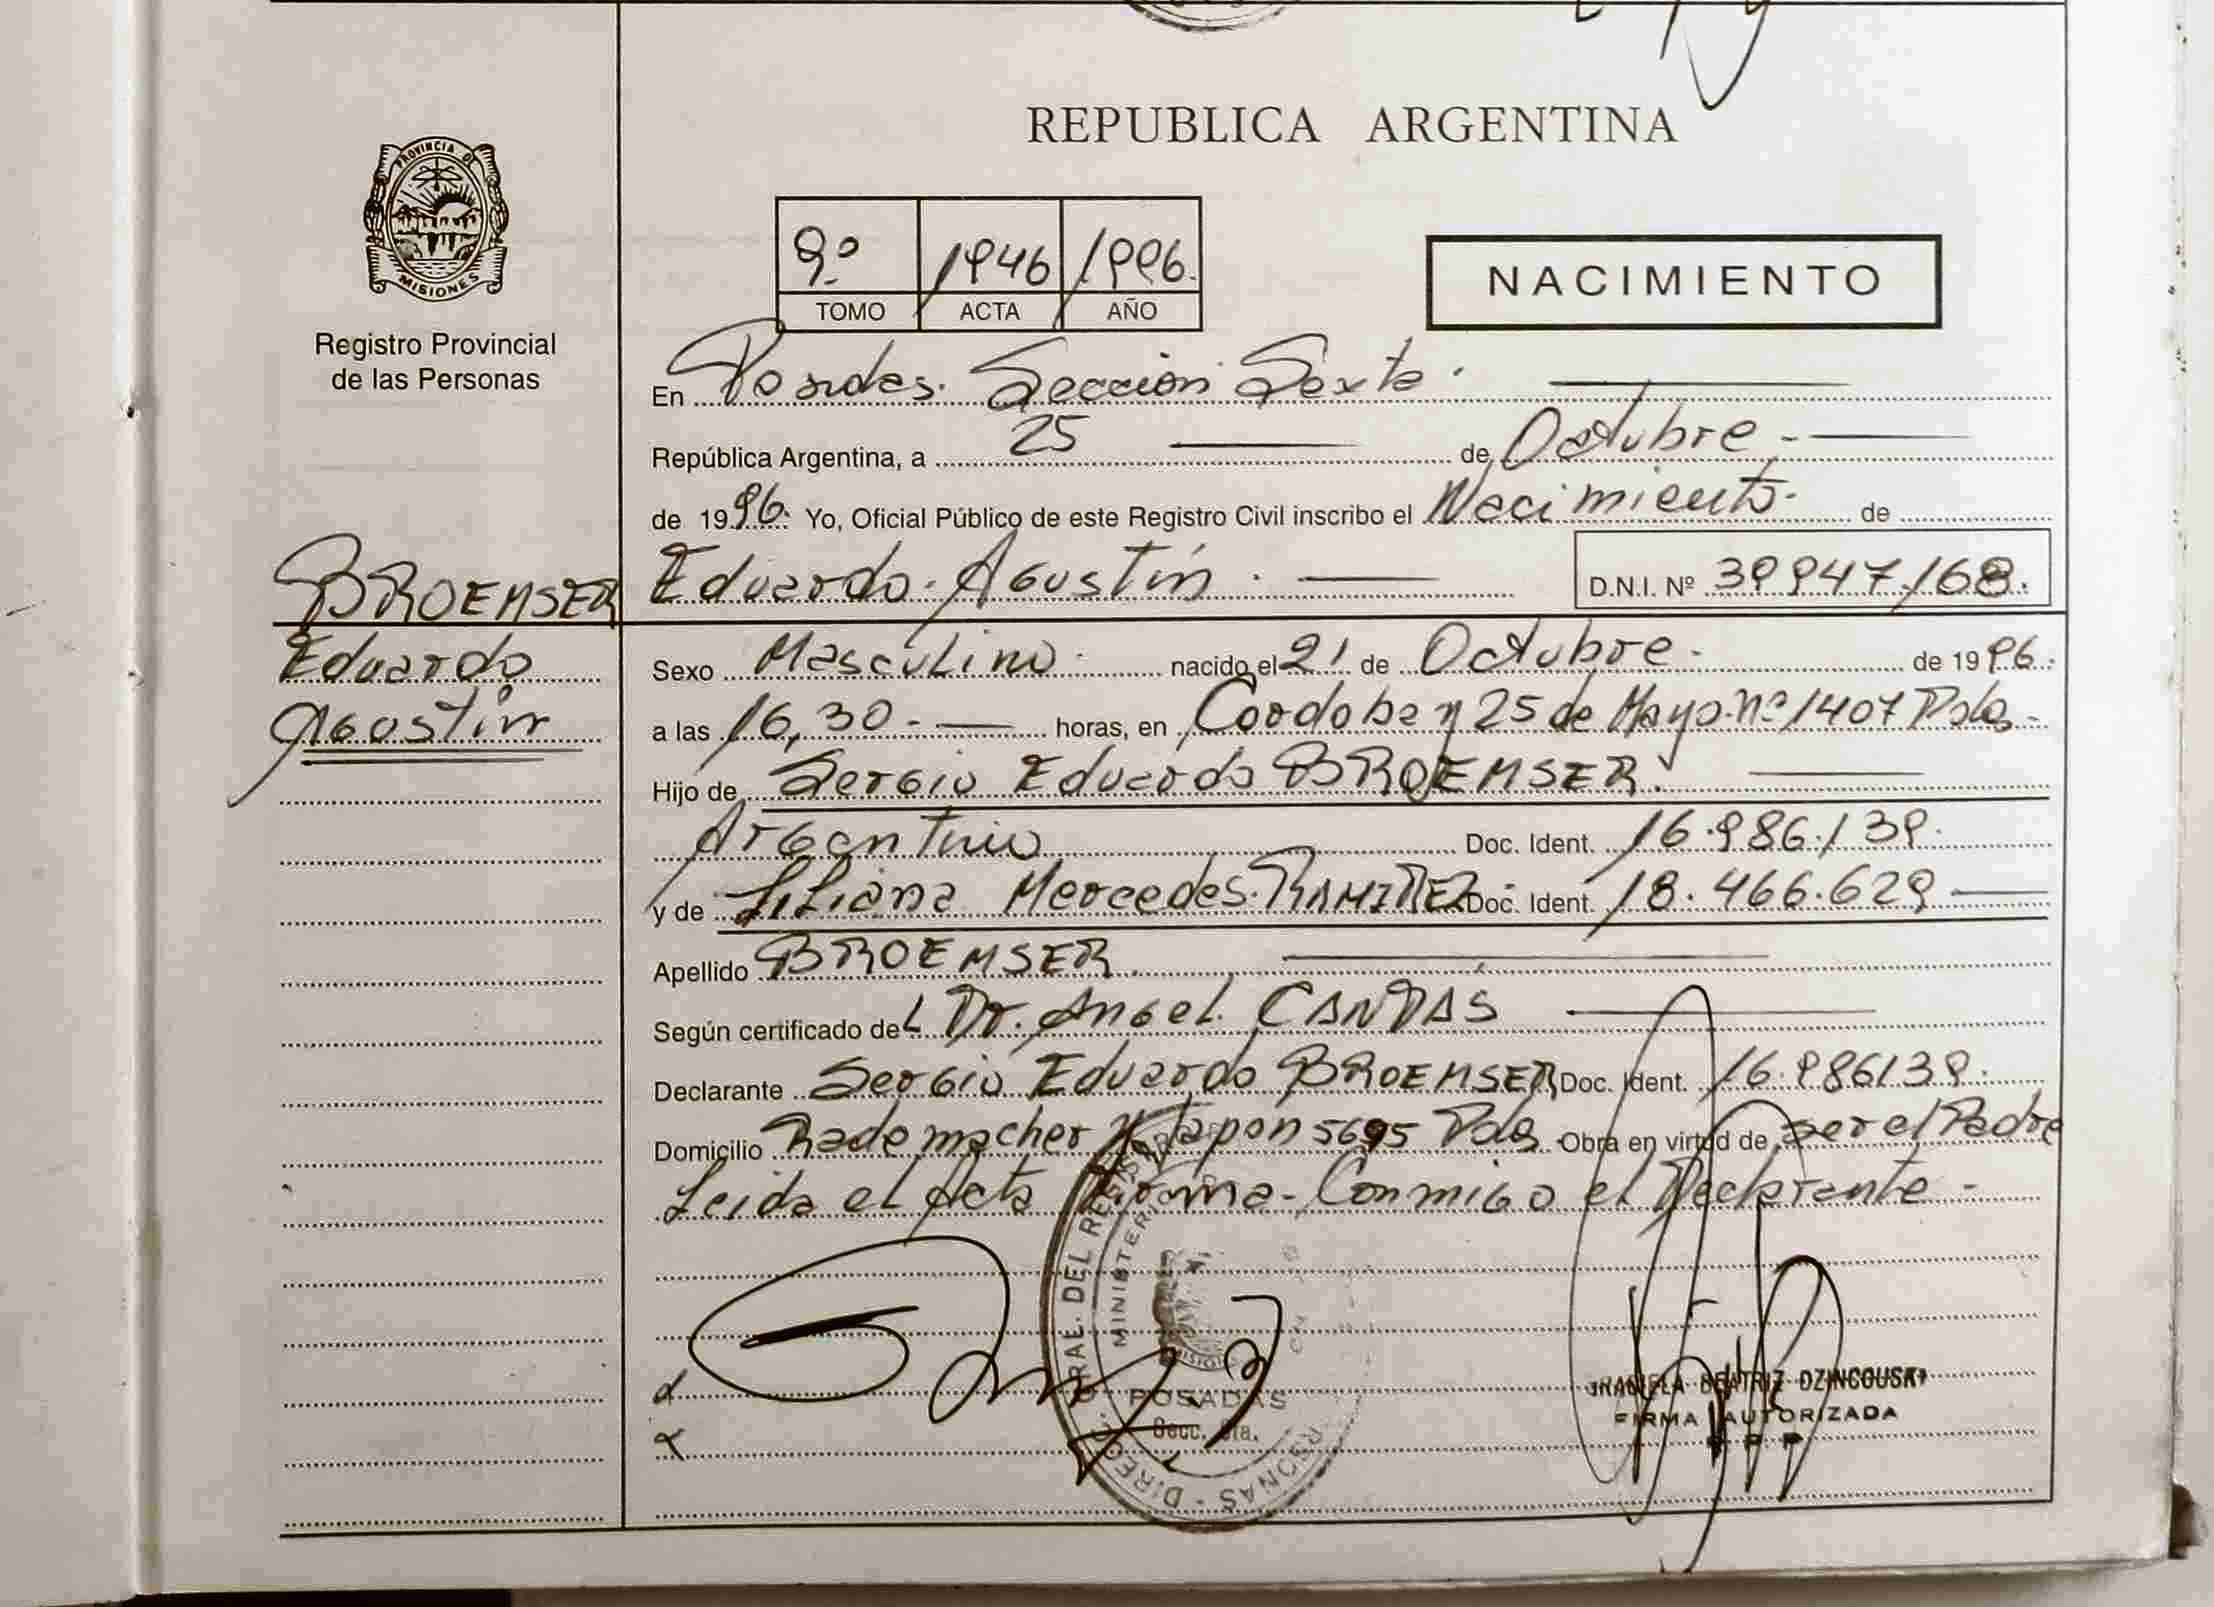 PROVINCIA DE
MISIONES
Registro Provincial
de las Personas
REPUBLICA ARGENTINA
9º 1946 1996.
TOMO ACTA AÑO
NACIMIENTO
En Posadas. Sección Sexta.
República Argentina, a 25 de Octubre.-
de 1996. Yo, Oficial Público de este Registro Civil inscribo el Nacimiento. de
BROEMSER Eduardo Agustín. D.N.I. Nº 39947168.
Eduardo
Agustín
Sexo Masculino. nacido el 21 de Octubre. de 1996.
a las 16,30.- horas, en Córdoba y 25 de Mayo. nº 1407 Pdas.
Hijo de Sergio Eduardo BROEMSER.
Argentino Doc. Ident. 16.986.139.
y de Liliana Mercedes RAMIREZ Doc. Ident. 18.466.629
Apellido BROEMSER
Según certificado del Dr. Angel CANDAS
Declarante Sergio Eduardo BROEMSER Doc. Ident. 16.986139.
Domicilio Rademacher y Tapon 5695 Pdas. Obra en virtud de ser el Padre
Leida el Acta Firma Conmigo el Declarante-
DIREC. GRAL. DEL
MINISTERI
POSADAS
Secc. 6ta.
GRACIELA BEATRIZ DZINCOUSKI
FIRMA AUTORIZADA
R P P